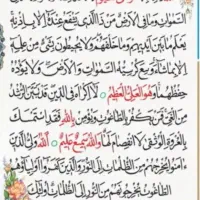 السَّمٰوَاتِ وَمَا فِي الْاَرْضِ مَنْ ذَا الَّذِي يَشْفَعُ عِنْدَهُ اِلَّا بِاِذْنِهِ
يَعْلَمُ مَا بَيْنَ اَيْدِيهِمْ وَمَا خَلْفَهُمْ وَلَا يُحِيطُونَ بِشَيْءٍ مِنْ عِلْمِهِ
اِلَّا بِمَا شَاءَ وَسِعَ كُرْسِيُّهُ السَّمٰوَاتِ وَالْاَرْضَ وَلَا يَؤُدُهُ
حِفْظُهُمَا وَهُوَ الْعَلِيُّ الْعَظِيمُ لَا اِكْرَاهَ فِي الدِّينِ قَدْ تَبَيَّنَ الرُّشْدُ
مِنَ الْغَيِّ فَمَنْ يَكْفُرْ بِالطَّاغُوتِ وَيُؤْمِنْ بِاللّٰهِ فَقَدِ اسْتَمْسَكَ
بِالْعُرْوَةِ الْوُثْقٰى لَا انْفِصَامَ لَهَا وَاللّٰهُ سَمِيعٌ عَلِيمٌ اَللّٰهُ وَلِيُّ الَّذِينَ
اٰمَنُوا يُخْرِجُهُمْ مِنَ الظُّلُمَاتِ اِلَى النُّورِ وَالَّذِينَ كَفَرُوا اَوْلِيَاؤُهُمُ
الطَّاغُوتُ يُخْرِجُونَهُمْ مِنَ النُّورِ اِلَى الظُّلُمَاتِ اُولٰئِكَ